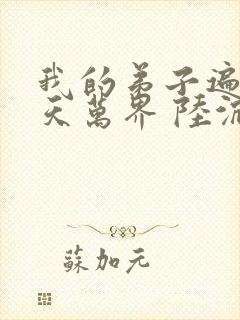 我的弟子遍
天萬界 陸沉
蘇加元